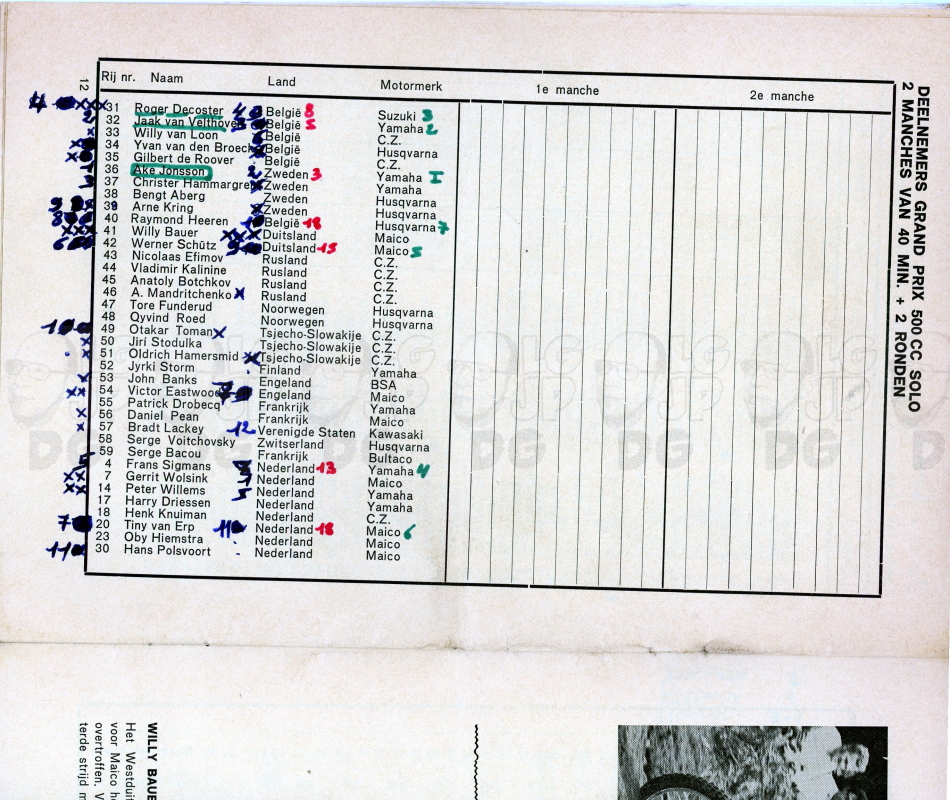 DEELNEMERS GRAND PRIX 500 CC SOLO
2 MANCHES VAN 40 MIN. + 2 RONDEN
12
Rij nr. Naam Land Motormerk 1e manche 2e manche
31 Roger Decoster België 8 Suzuki 3
32 Jaak van Velthoven België 5 Yamaha 2
33 Willy van Loon België C.Z.
34 Yvan van den Broeck België Husqvarna
35 Gilbert de Roover België C.Z.
36 Ake Jonsson 2 Zweden 3 Yamaha I
37 Christer Hammargren Zweden Yamaha
38 Bengt Aberg Zweden Husqvarna
39 Arne Kring X Zweden Husqvarna
40 Raymond Heeren België 18 Husqvarna 7
41 Willy Bauer XXX Duitsland Maico
42 Werner Schütz Duitsland 15 Maico 5
43 Nicolaas Efimov Rusland C.Z.
44 Vladimir Kalinine Rusland C.Z.
45 Anatoly Botchkov Rusland C.Z.
46 A. Mandritchenko X Rusland C.Z.
47 Tore Funderud Noorwegen Husqvarna
48 Qyvind Roed Noorwegen Husqvarna
49 Otakar Toman X Tsjecho-Slowakije C.Z.
50 Jirí Stodulka Tsjecho-Slowakije C.Z.
51 Oldrich Hamersmid Tsjecho-Slowakije C.Z.
52 Jyrki Storm Finland Yamaha
53 John Banks Engeland BSA
54 Victor Eastwood Engeland Maico
55 Patrick Drobecq Frankrijk Yamaha
56 Daniel Pean Frankrijk Maico
57 Bradt Lackey 12 Verenigde Staten Kawasaki
58 Serge Voitchovsky Zwitserland Husqvarna
59 Serge Bacou Frankrijk Bultaco
4 Frans Sigmans Nederland 13 Yamaha 4
7 Gerrit Wolsink Nederland Maico
14 Peter Willems Nederland Yamaha
17 Harry Driessen Nederland Yamaha
18 Henk Knuiman Nederland C.Z.
20 Tiny van Erp Nederland 18 Maico 6
23 Oby Hiemstra Nederland Maico
30 Hans Polsvoort Nederland Maico
WILLY
Het
voor Maico
overtroffen.
terde strijd